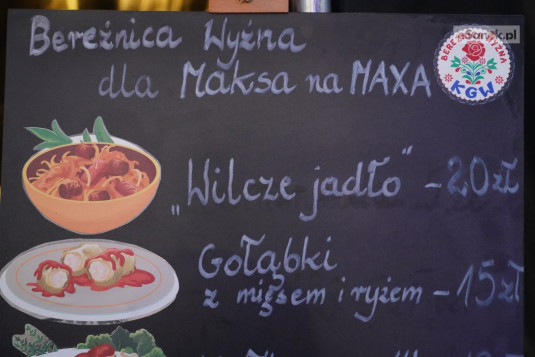 Bereźnica Wyżna
dla Maksa na MAXA
BEREŹNICA WYŻNA
KGW
„Wilcze jadło” – 20 zł
Gołąbki
z mięsem i ryżem – 15 zł